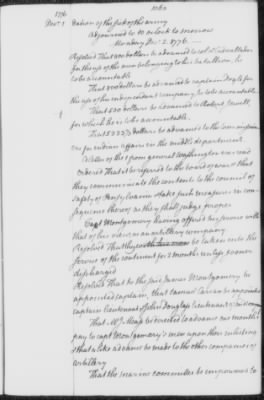 1776
Dec. 1
dation of the state of the army
adjourned to 10 oclock to morrow
Monday Dec. 2. 1776.
Resolved That 500 dollars be advanced to col
for the use of the men belonging to his battalion, he
to be accountable
That 500 dollars be advanced to captain Doyle for
the use of his independent company, he to be accountable
That 500 dollars be advanced to Robert Jewell,
for which he is to be accountable.
That 5333 ⅓ dollars be advanced to the commission
ers for indian affairs in the middle department
A letter of the 1 from general Washington was read
Ordered That it be referred to the board of war & that
they communicate the contents to the council of
safety of Pensylvania & take such measures in con
sequence thereof as they shall judge proper
Capt Montgomery having offered his service with
that of his men as an artillery company
Resolved That they be taken into the
service of the continent for 2 months unless sooner
discharged
Resolved That the said James Montgomery be
appointed captain, that
captain lieutenant & John Douglass lieutenant of said company
That Mr. Mease be directed to advance one month's
pay to capt Montgomery's men upon their inlisting
& that a like advance be made to the other companies of
artillery
That the marine committee be empowered to